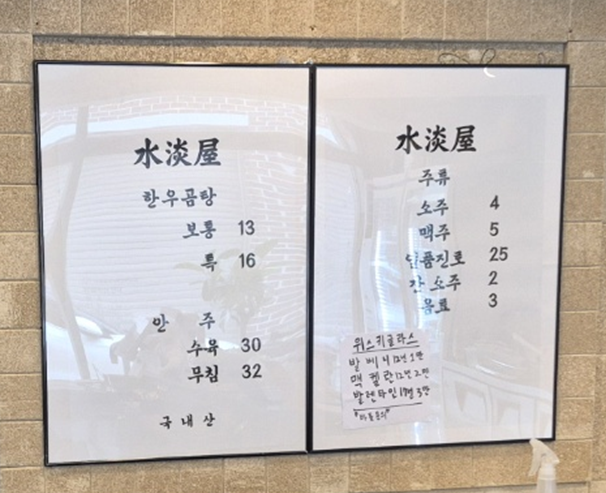 水淡屋
한우곰탕
보통 13
특 16
안 주
수육 30
무침 32
국 내 산
水淡屋
주류
소주 4
맥주 5
일품진로 25
잔 소주 2
음료 3
위스키글라스
발베니 12년 1만
맥켈란 12년 2만
발렌타인 17년 3만